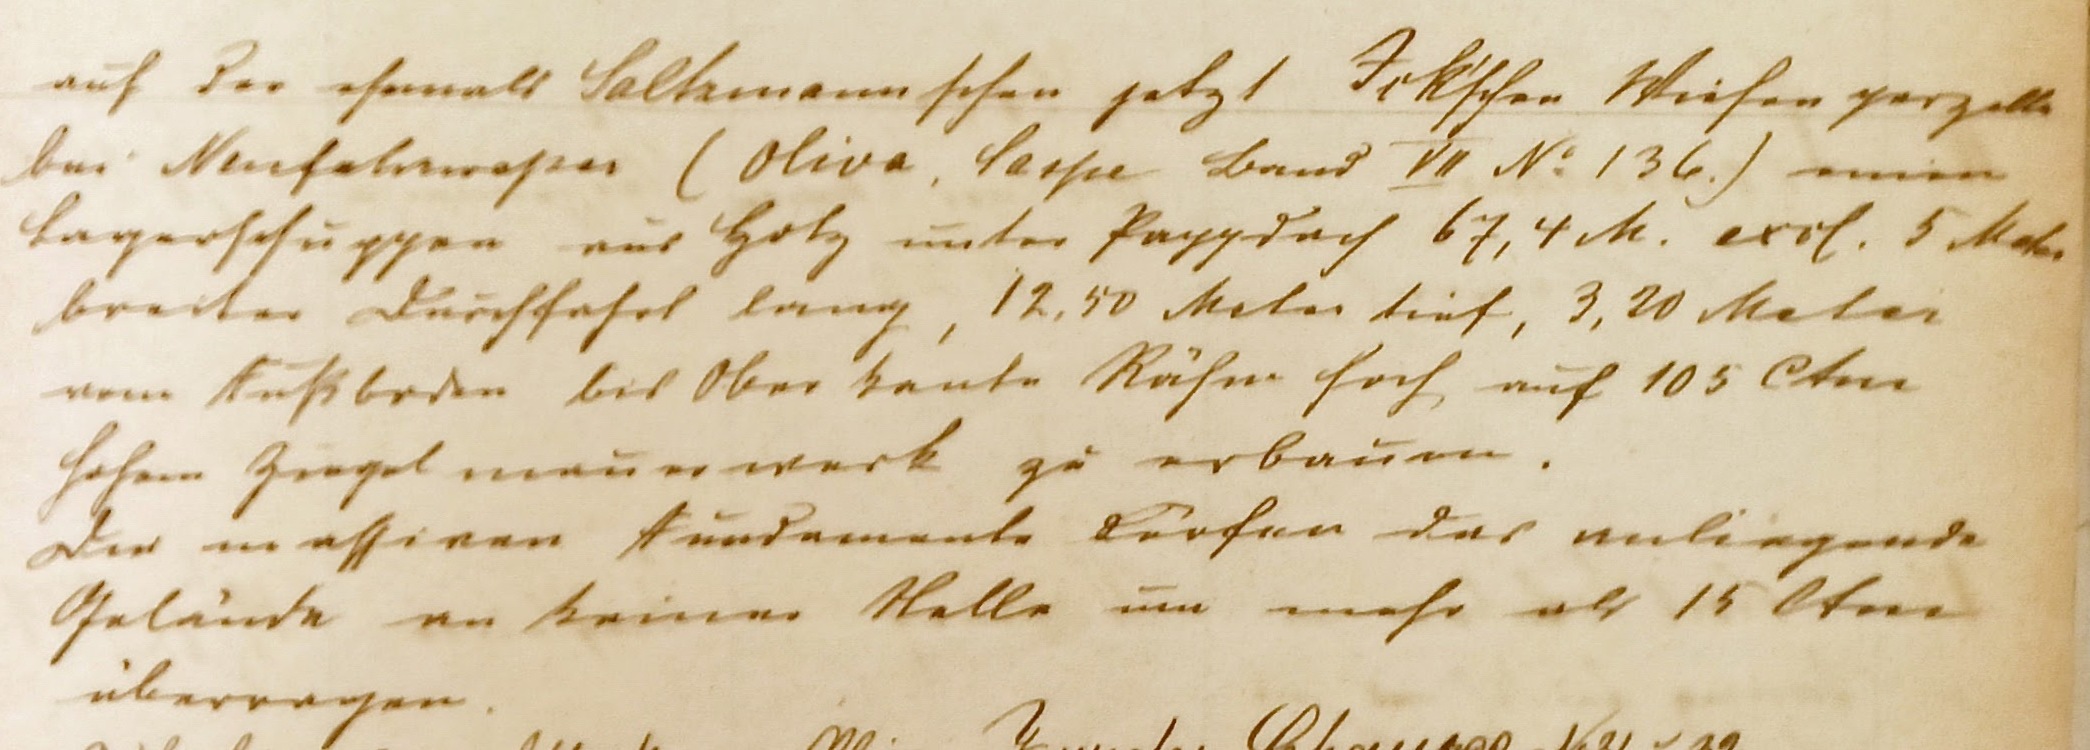 auf der ehemals Saltzmannschen jetzt Ick'schen Wiesenparzelle
bei Neufahrwasser (Oliva, Saspe Band VII No. 136.) einen
Lagerschuppen aus Holz unter Pappdach 67,4 M. excl. 5 Meter
breiter Durchfahrt lang, 12,50 Meter tief, 3,20 Meter
vom Fußboden bis Oberkante Rähm hoch, auf 105 Ctm
hohem Ziegelmauerwerk zu erbauen.
Die massiven Fundamente dürfen das anliegende
Gelände an keiner Stelle um mehr als 15 Ctm
überragen.